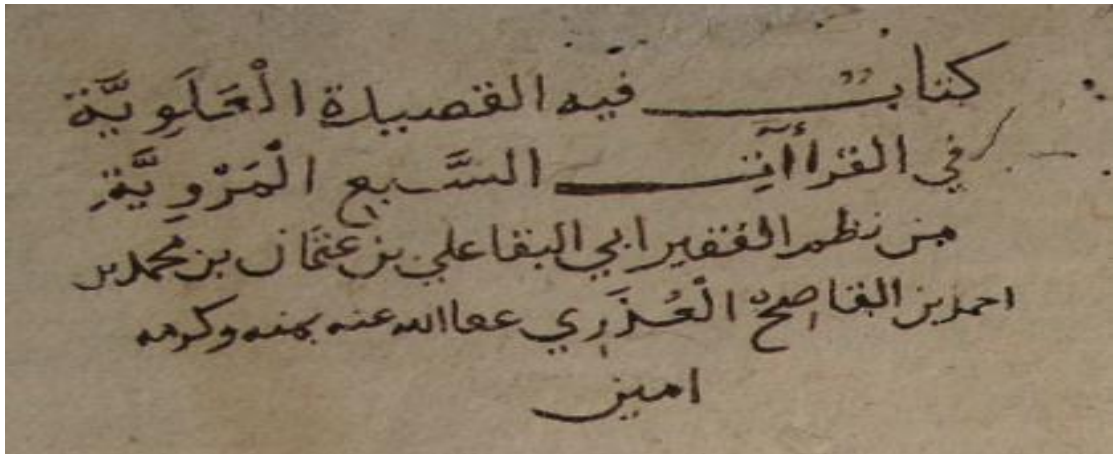 كتاب فيه القصيدة الْعَلَوِيَّة
في القراآتِ السَّبع الْمَرْوِيَّةِ
من نظم الفقير ابي البقا علي بن عثمان بن محمد بن
احمد بن القاصح الْعُذَرِي عفا الله عنه بمنه وكرمه
امين